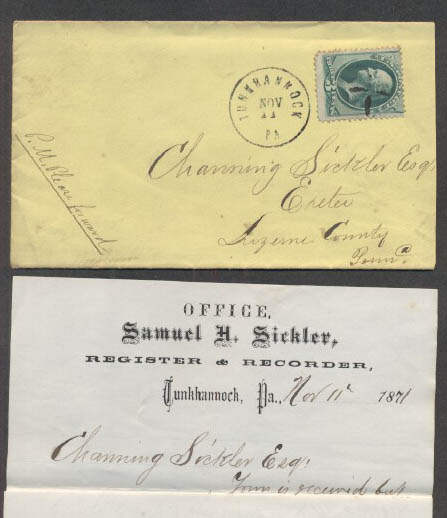 TUNKHANNOCK
NOV
11
PA
Channing Sickler Esq
Exeter
Luzerne County
Penna.
P.M. Please forward
OFFICE,
Samuel H. Sickler,
REGISTER & RECORDER,
Tunkhannock, Pa., Nov 11 1871
Channing Sickler Esq:
is received but